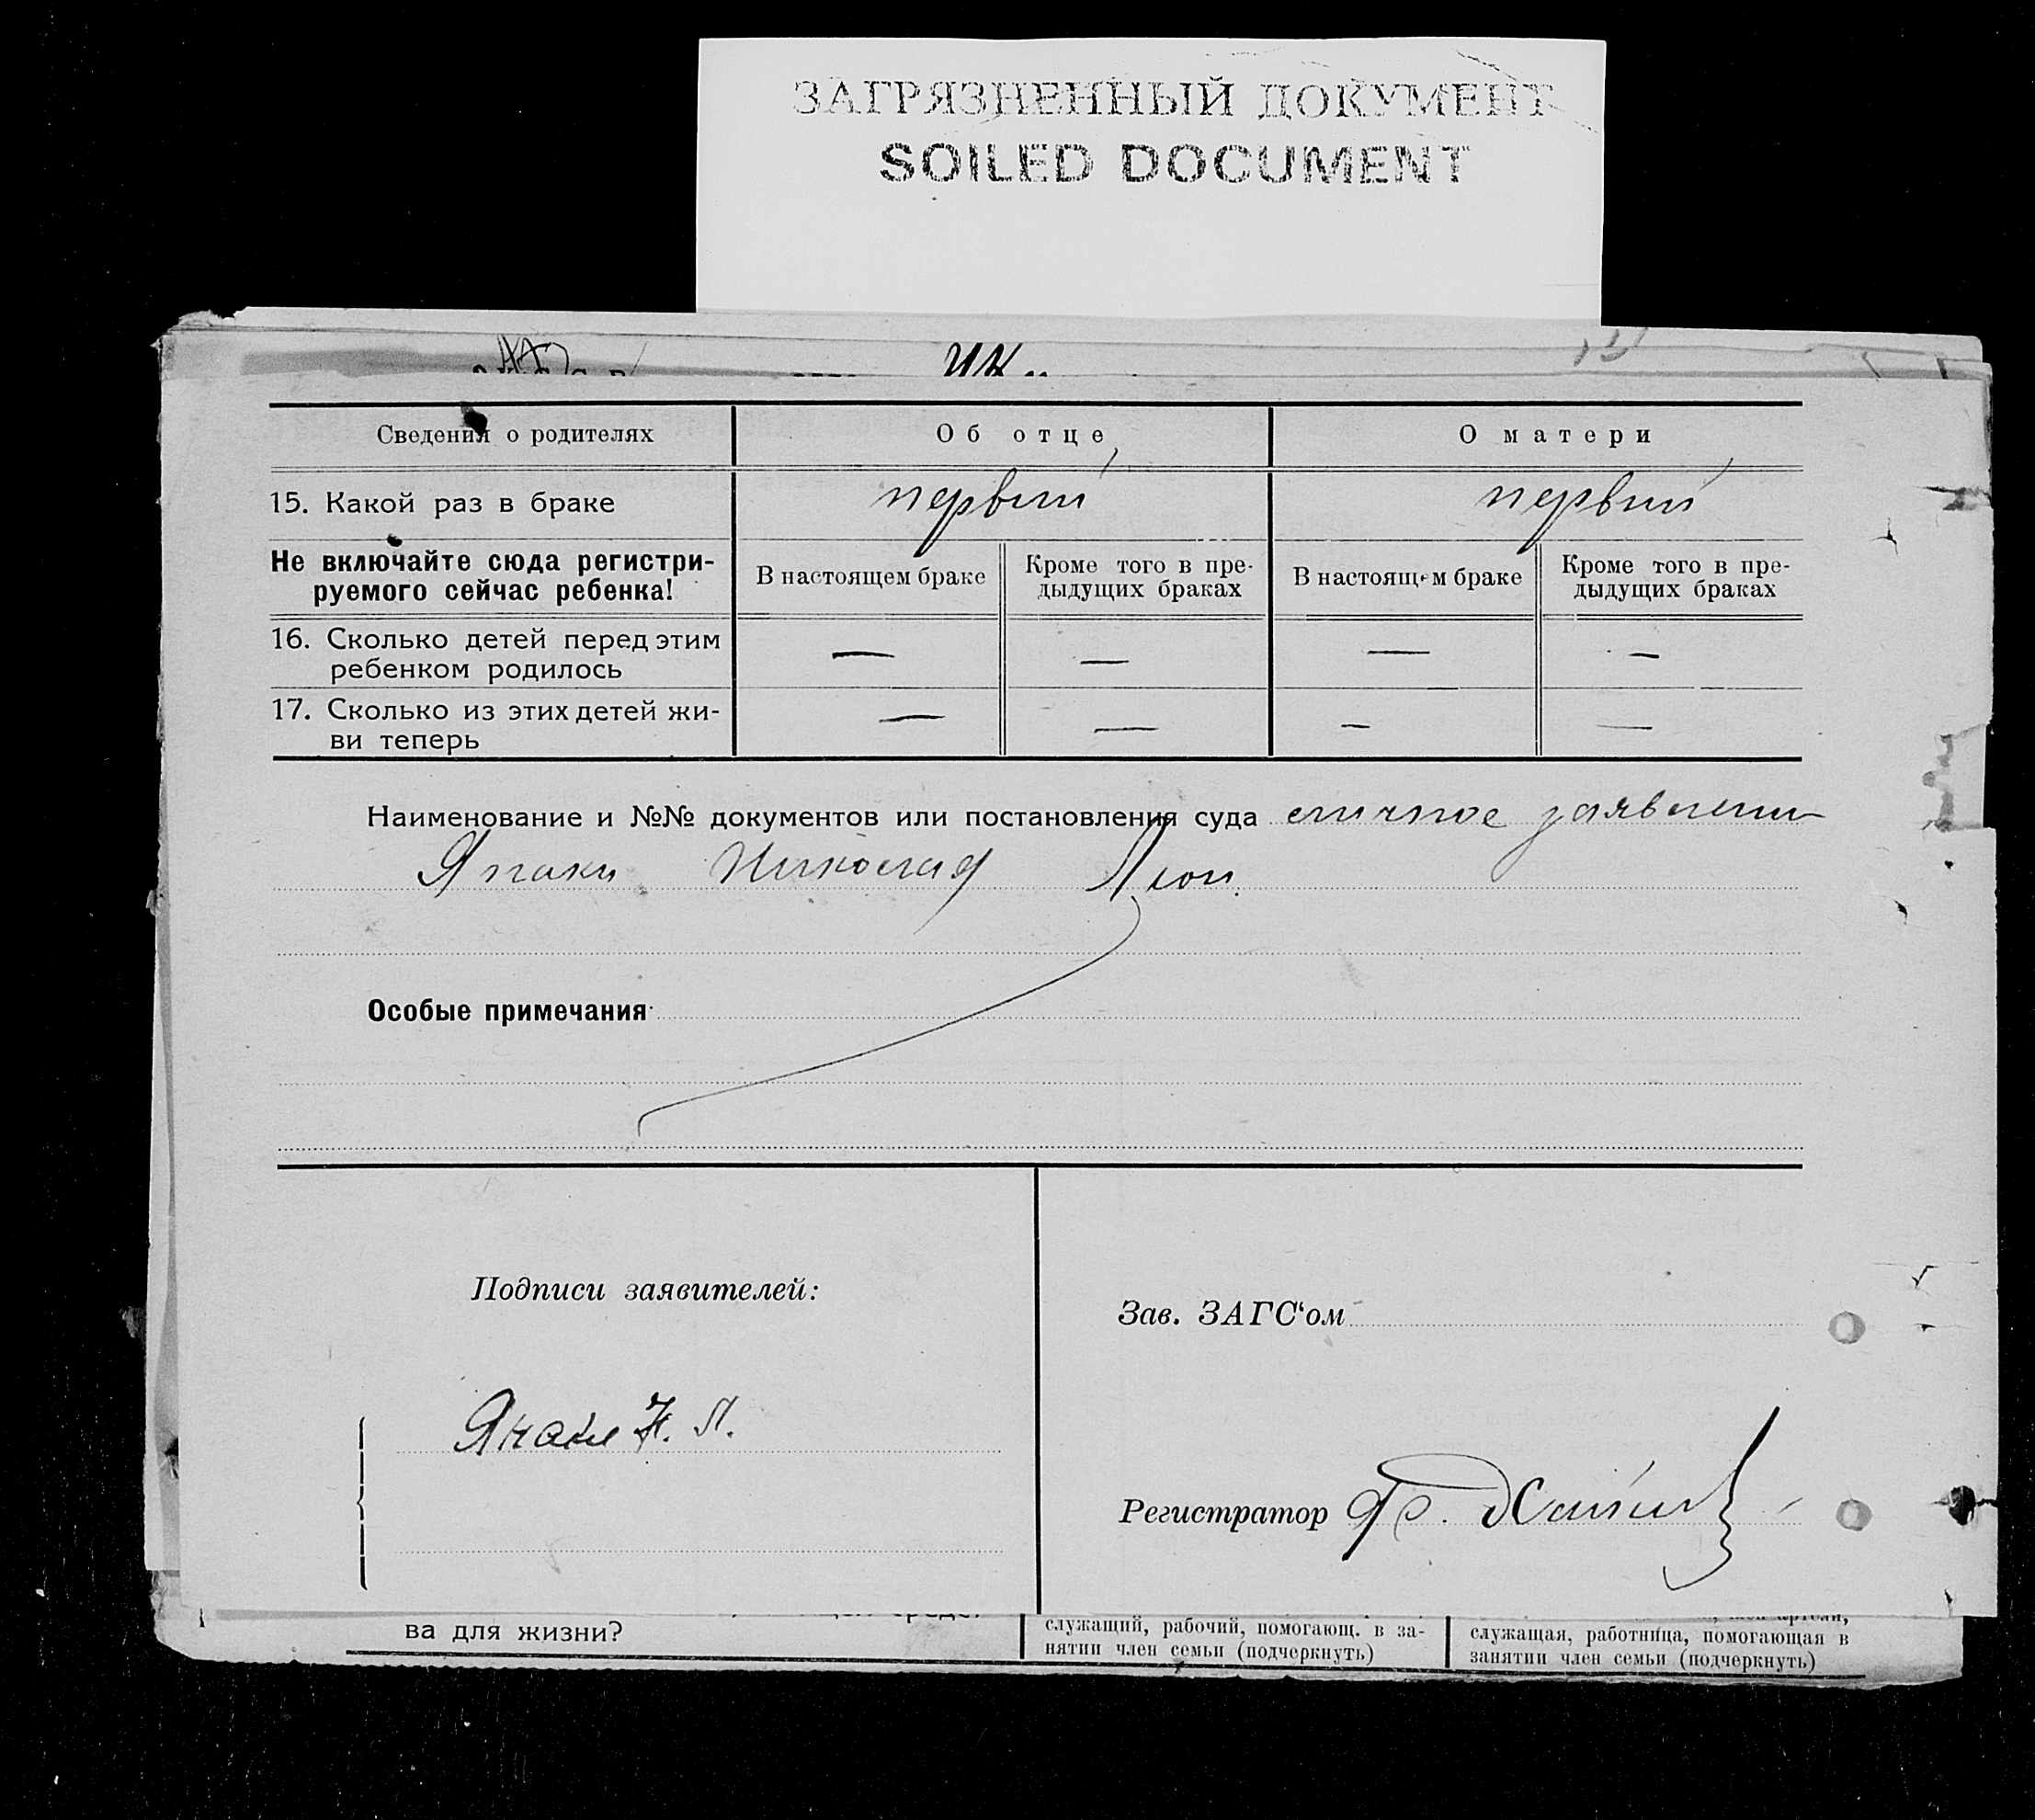 ЗАГРЯЗНЕННЫЙ ДОКУМЕНТ
SOILED DOCUMENT
Сведения о родителях
Об отце
О матери
15. Какой раз в браке
первый
первый
Не включайте сюда регистри-
руемого сейчас ребенка!
В настоящем браке
Кроме того в пре-
дыдущих браках
В настоящем браке
Кроме того в пре-
дыдущих браках
16. Сколько детей перед этим
ребенком родилось
—
—
—
—
17. Сколько из этих детей жи-
ви теперь
—
—
—
—
Наименование и №№ документов или постановления суда личное заявлени
Янаки Николай
Особые примечания
Подписи заявителей:
Зав. ЗАГС'ом
Янаки Н. Л.
Регистратор
ва для жизни?
служащий, рабочий, помогающ. в за-
нятии член семьи (подчеркнуть)
служащая, работница, помогающая в
занятии член семьи (подчеркнуть)